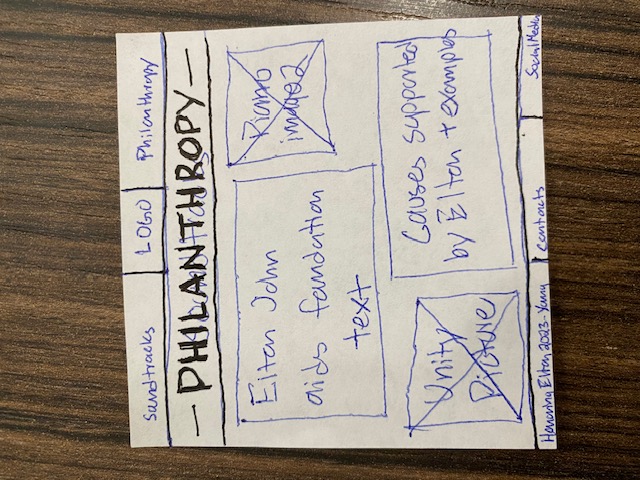 Soundtracks LOGO Philanthropy
— PHILANTHROPY —
Elton John
aids foundation
text
Piano
image 2
Unity
Picture
Causes supported
by Elton + examples
Honoring Elton 2023 - Yamy Contacts Social Media